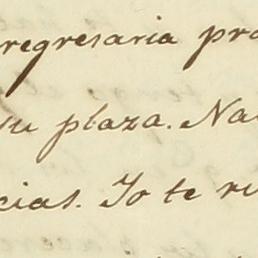 regresaria pro
su plaza. Na
cias. Yo te ru